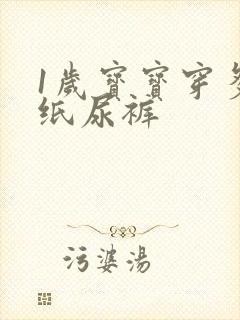 1歲寶寶穿
纸尿裤
污婆湯